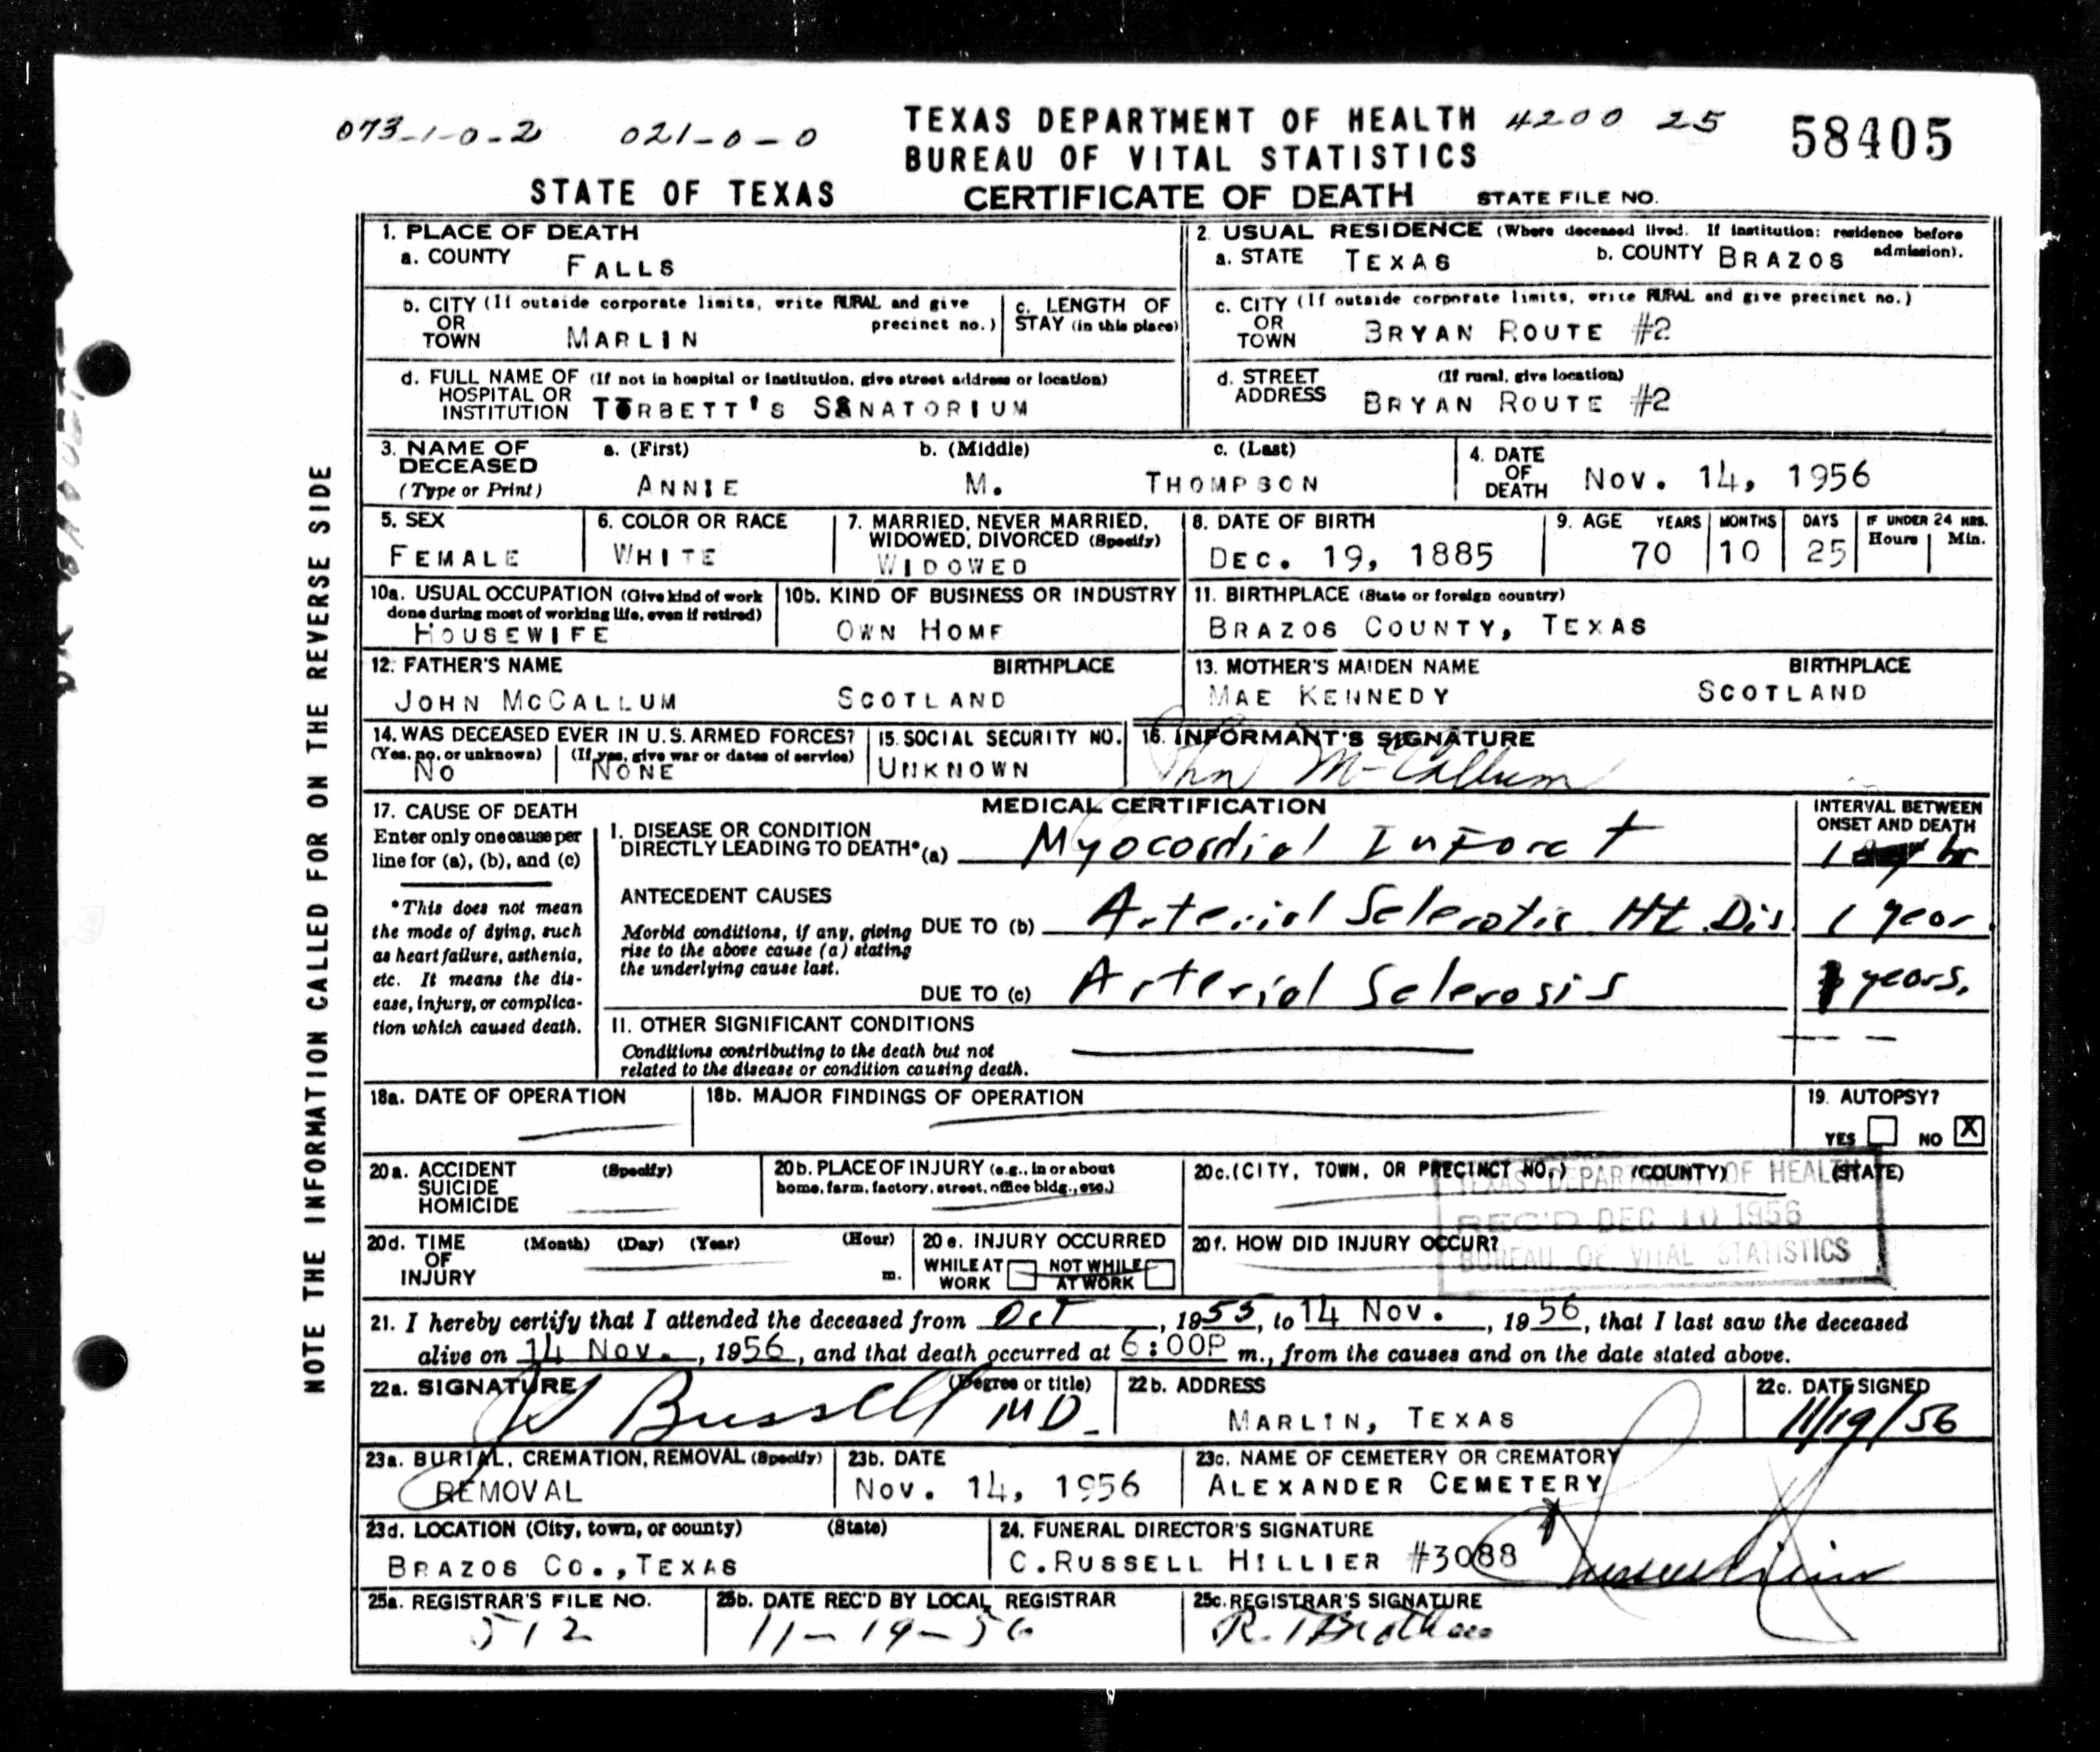 073-1-0-2 021-0-0 TEXAS DEPARTMENT OF HEALTH 4200 25 58405
BUREAU OF VITAL STATISTICS
STATE OF TEXAS CERTIFICATE OF DEATH STATE FILE NO.
NOTE THE INFORMATION CALLED FOR ON THE REVERSE SIDE
1. PLACE OF DEATH
a. COUNTY FALLS
2. USUAL RESIDENCE (Where deceased lived. If institution: residence before admission).
a. STATE TEXAS b. COUNTY BRAZOS
b. CITY (If outside corporate limits, write RURAL and give precinct no.)
OR TOWN MARLIN
c. LENGTH OF STAY (in this place)
c. CITY (If outside corporate limits, write RURAL and give precinct no.)
OR TOWN BRYAN ROUTE #2
d. FULL NAME OF HOSPITAL OR INSTITUTION (If not in hospital or institution, give street address or location)
TORBETT'S SANATORIUM
d. STREET ADDRESS (If rural, give location)
BRYAN ROUTE #2
3. NAME OF DECEASED (Type or Print)
a. (First) b. (Middle) c. (Last)
ANNIE M. THOMPSON
4. DATE OF DEATH NOV. 14, 1956
5. SEX
FEMALE
6. COLOR OR RACE
WHITE
7. MARRIED, NEVER MARRIED, WIDOWED, DIVORCED (Specify)
WIDOWED
8. DATE OF BIRTH
DEC. 19, 1885
9. AGE YEARS MONTHS DAYS IF UNDER 24 HRS. Hours Min.
70 10 25
10a. USUAL OCCUPATION (Give kind of work done during most of working life, even if retired)
HOUSEWIFE
10b. KIND OF BUSINESS OR INDUSTRY
OWN HOME
11. BIRTHPLACE (State or foreign country)
BRAZOS COUNTY, TEXAS
12. FATHER'S NAME BIRTHPLACE
JOHN MCCALLUM SCOTLAND
13. MOTHER'S MAIDEN NAME BIRTHPLACE
MAE KENNEDY SCOTLAND
14. WAS DECEASED EVER IN U.S. ARMED FORCES?
(Yes, no, or unknown) (If yes, give war or dates of service)
NO NONE
15. SOCIAL SECURITY NO.
UNKNOWN
16. INFORMANT'S SIGNATURE
John McCallum
17. CAUSE OF DEATH
Enter only one cause per line for (a), (b), and (c)
*This does not mean the mode of dying, such as heart failure, asthenia, etc. It means the disease, injury, or complication which caused death.
MEDICAL CERTIFICATION
INTERVAL BETWEEN ONSET AND DEATH
I. DISEASE OR CONDITION DIRECTLY LEADING TO DEATH* (a) Myocordial Inforct 1 hr
ANTECEDENT CAUSES
Morbid conditions, if any, giving rise to the above cause (a) stating the underlying cause last.
DUE TO (b) Arterial Sclerotic Ht. Dis. 1 year.
DUE TO (c) Arterial Sclerosis years.
II. OTHER SIGNIFICANT CONDITIONS
Conditions contributing to the death but not related to the disease or condition causing death.
18a. DATE OF OPERATION
18b. MAJOR FINDINGS OF OPERATION
19. AUTOPSY?
YES NO X
20a. ACCIDENT SUICIDE HOMICIDE (Specify)
20b. PLACE OF INJURY (e.g., in or about home, farm, factory, street, office bldg., etc.)
20c. (CITY, TOWN, OR PRECINCT NO.) (COUNTY) (STATE)
TEXAS DEPARTMENT OF HEALTH
REC'D DEC 10 1956
BUREAU OF VITAL STATISTICS
20d. TIME OF INJURY (Month) (Day) (Year) (Hour) m.
20e. INJURY OCCURRED
WHILE AT WORK NOT WHILE AT WORK
20f. HOW DID INJURY OCCUR?
21. I hereby certify that I attended the deceased from Oct, 1955, to 14 NOV., 1956, that I last saw the deceased
alive on 14 NOV., 1956, and that death occurred at 6:00P m., from the causes and on the date stated above.
22a. SIGNATURE (Degree or title)
Bussell MD.
22b. ADDRESS
MARLIN, TEXAS
22c. DATE SIGNED
11/19/56
23a. BURIAL, CREMATION, REMOVAL (Specify)
REMOVAL
23b. DATE
NOV. 14, 1956
23c. NAME OF CEMETERY OR CREMATORY
ALEXANDER CEMETERY
23d. LOCATION (City, town, or county) (State)
BRAZOS CO., TEXAS
24. FUNERAL DIRECTOR'S SIGNATURE
C. RUSSELL HILLIER #3088
25a. REGISTRAR'S FILE NO.
512
25b. DATE REC'D BY LOCAL REGISTRAR
11-19-56
25c. REGISTRAR'S SIGNATURE